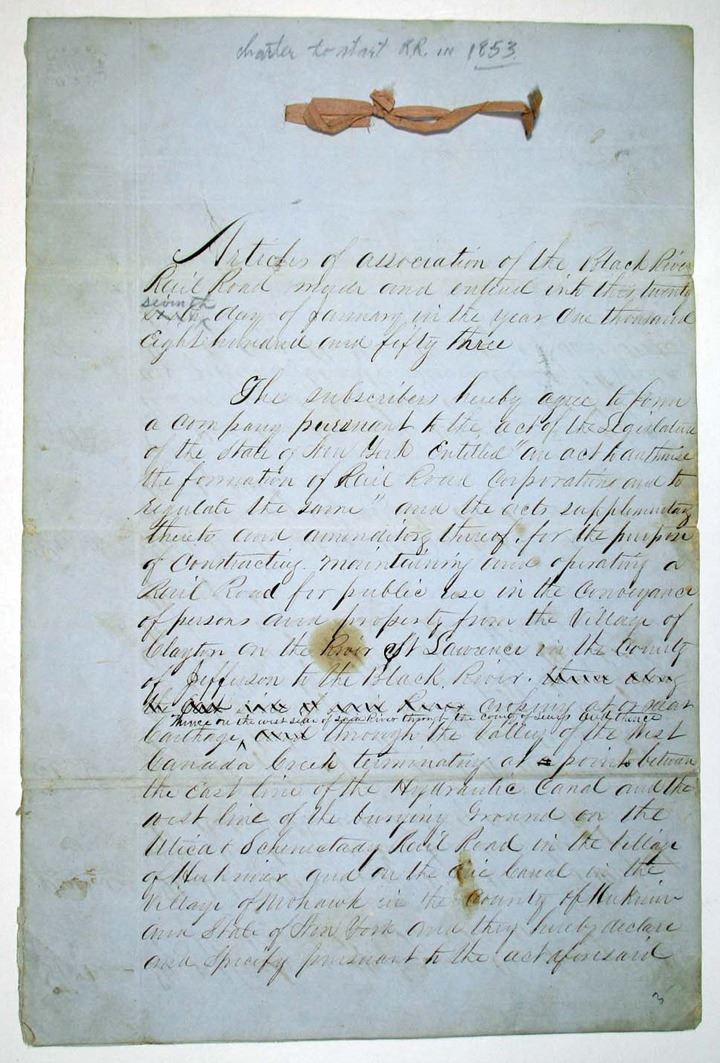 charter to start R.R. in 1853.
Articles of association of the Black River
Rail Road made and entered into this twenty
seventh
day of January in the year One thousand
Eight hundred and fifty three
The subscribers hereby agree to form
a Company pursuant to the act of the Legislature
of the State of New York Entitled "an act to authorise
the formation of Rail Road Corporations and to
regulate the same" and the acts supplementary
thereto and amenditory thereof, for the purpose
of Constructing, maintaining and operating a
Rail Road for public use in the Conveyance
of persons and property from the Village of
Clayton on the River St Lawrence in the County
of Jefferson to the Black River. thence along
the East side of said River crossing at or near
thence on the west side of said River through the county of Lewis and thence
Carthage, and through the Valley of the West
Canada Creek terminating at a point between
the east line of the Hydraulic Canal and the
west line of the burying Ground on the
Utica & Schenectady Rail Road in the Village
of Herkimer and on the Erie Canal in the
Village of Mohawk in the County of Herkimer
and State of New York and they hereby declare
and Specify pursuant to the act aforesaid